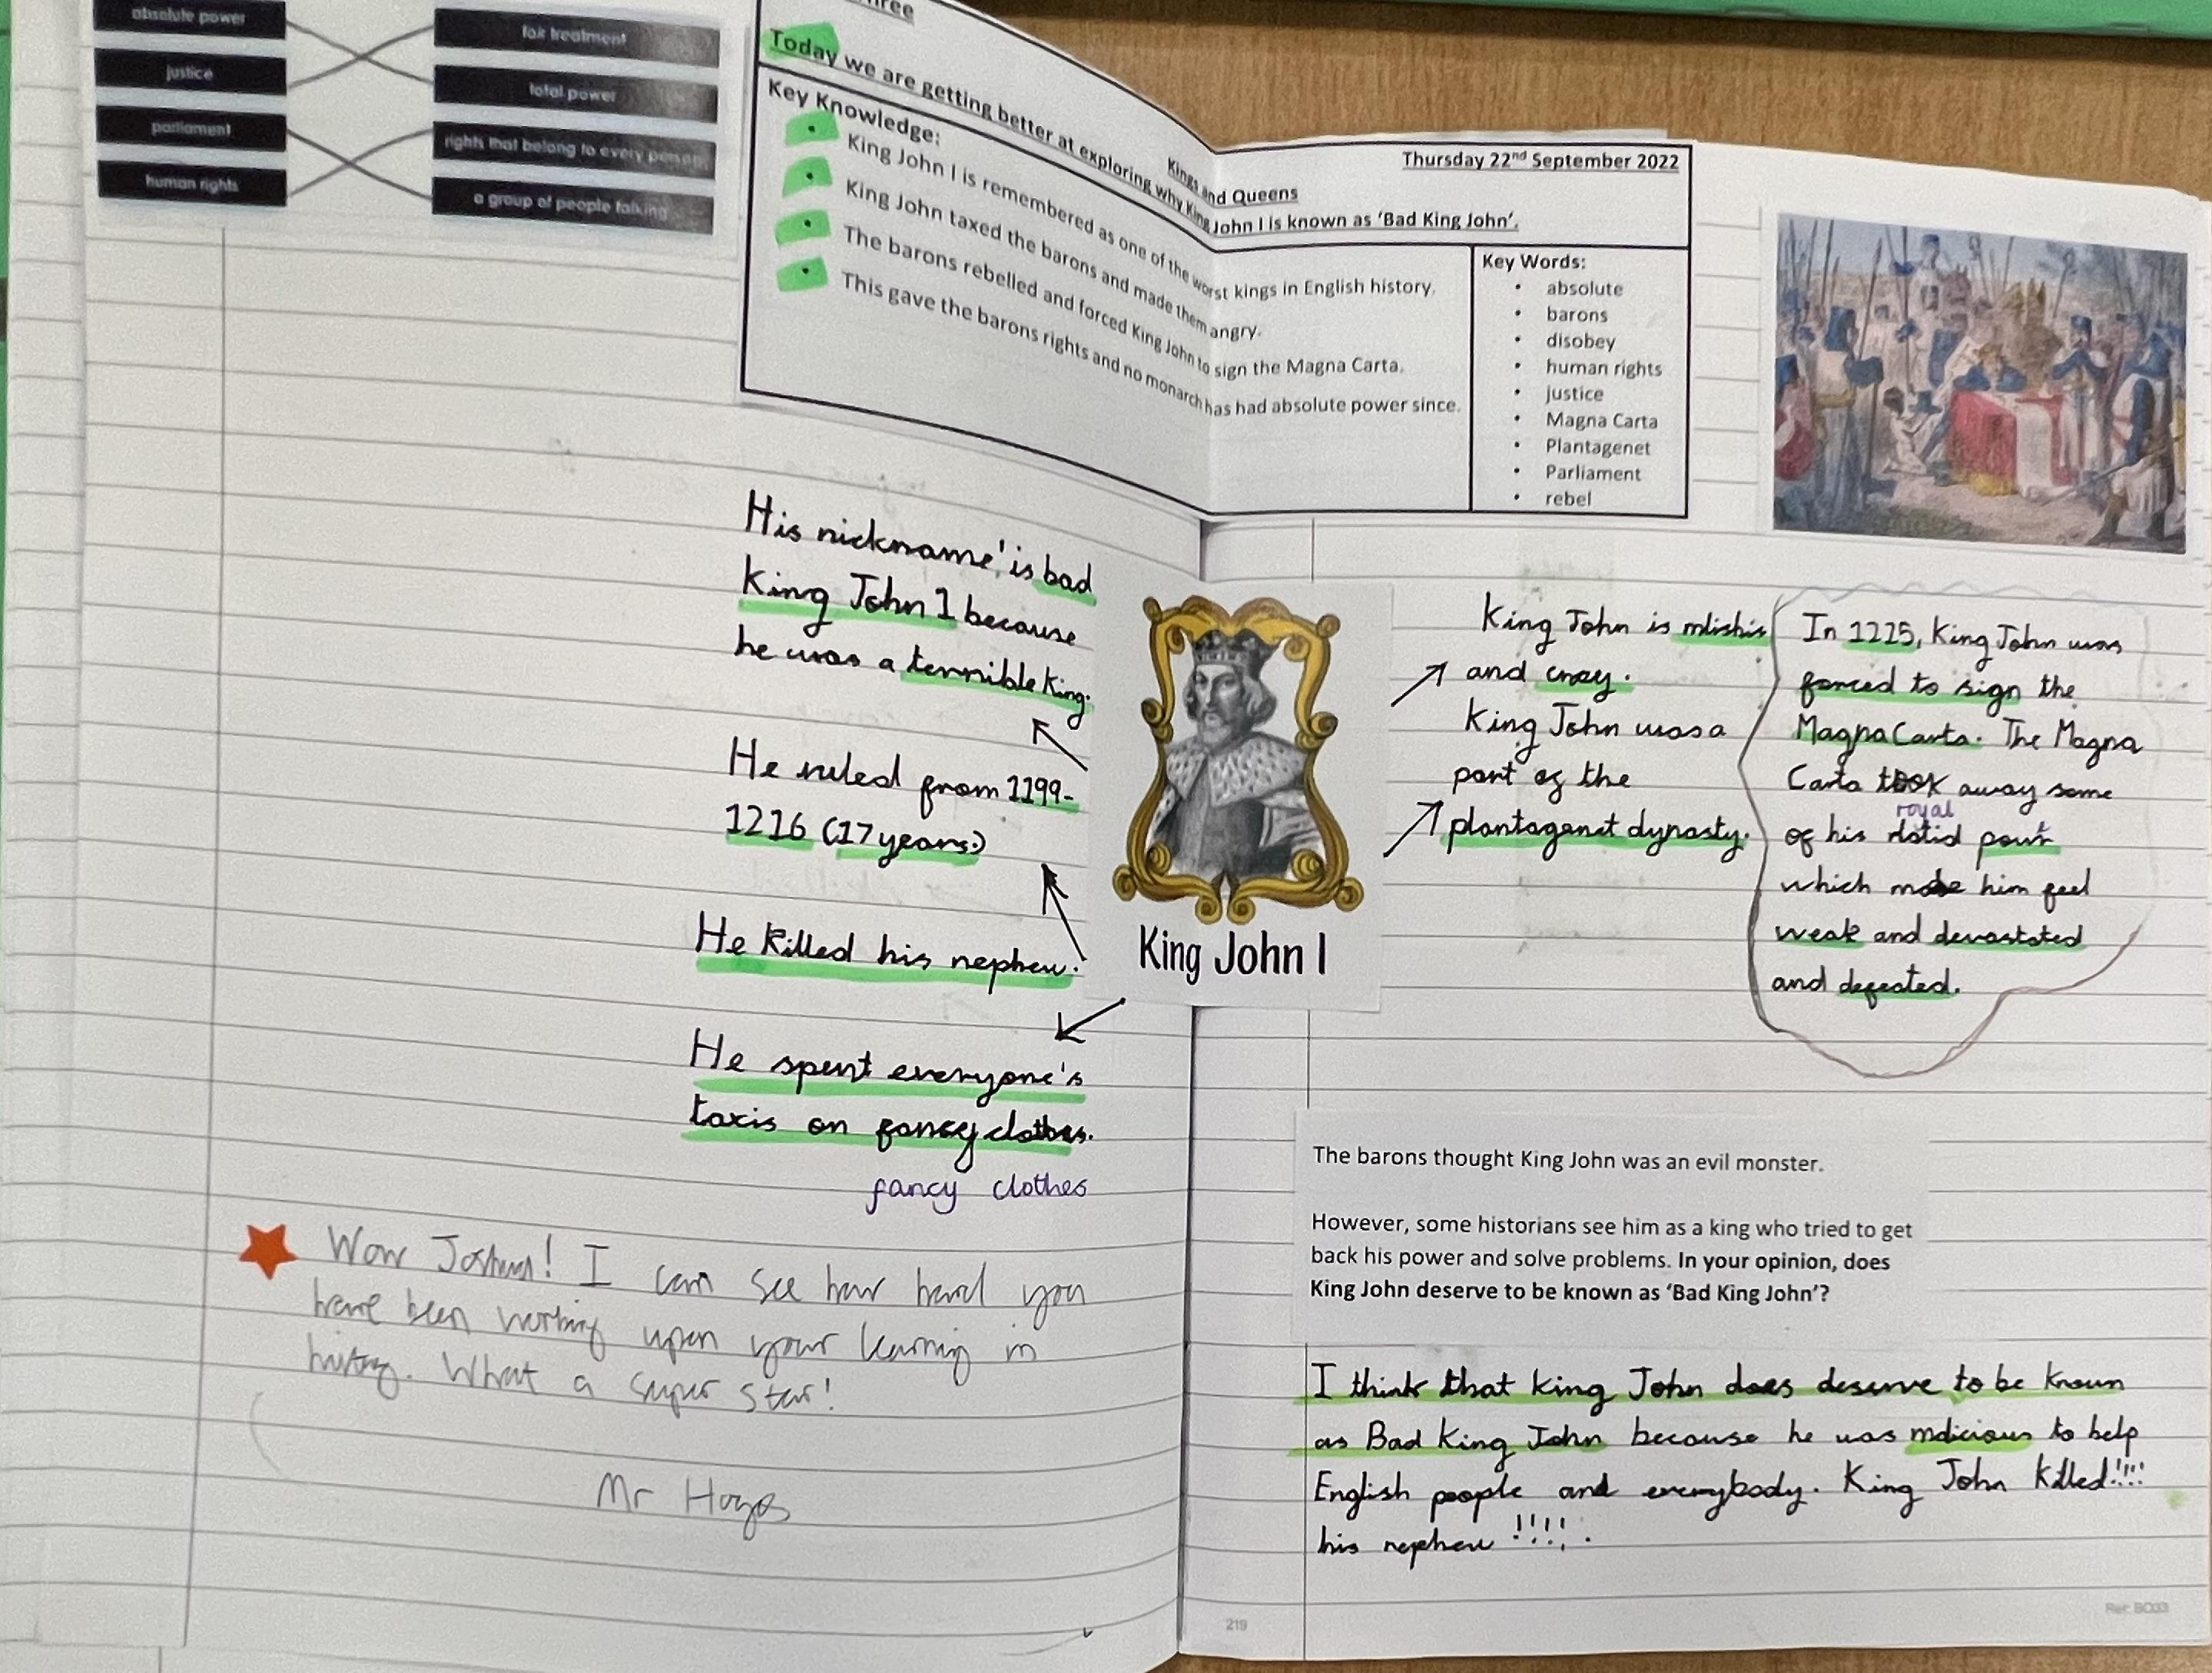 absolute power
justice
parliament
human rights
fair treatment
total power
rights that belong to every person
a group of people talking
Thursday 22nd September 2022
Kings and Queens
Today we are getting better at exploring why King John I is known as ‘Bad King John’.
Key Knowledge:
• King John I is remembered as one of the worst kings in English history.
• King John taxed the barons and made them angry.
• The barons rebelled and forced King John to sign the Magna Carta.
• This gave the barons rights and no monarch has had absolute power since.
Key Words:
• absolute
• barons
• disobey
• human rights
• justice
• Magna Carta
• Plantagenet
• Parliament
• rebel
His nickname is bad
King John I because
he was a terrible King.
He ruled from 1199-
1216 (17 years.)
He killed his nephew.
He spent everyone's
taxis on fancy clothes.
fancy clothes
King John I
King John is
and
King John was a
part of the
plantagenet dynasty.
In 1225, King John was
forced to sign the
Magna Carta. The Magna
Carta took away some
royal
of his
which made him feel
weak and devastated
and defeated.
Wow Joshua! I can see how hard you
have been working upon your learning in
history. What a super star!
Mr Hayes
The barons thought King John was an evil monster.
However, some historians see him as a king who tried to get
back his power and solve problems. In your opinion, does
King John deserve to be known as ‘Bad King John’?
I think that king John does deserve to be known
as Bad King John because he was to help
English people and everybody. King John killed!!!!
his nephew !!!!.
219
Ref: BC03